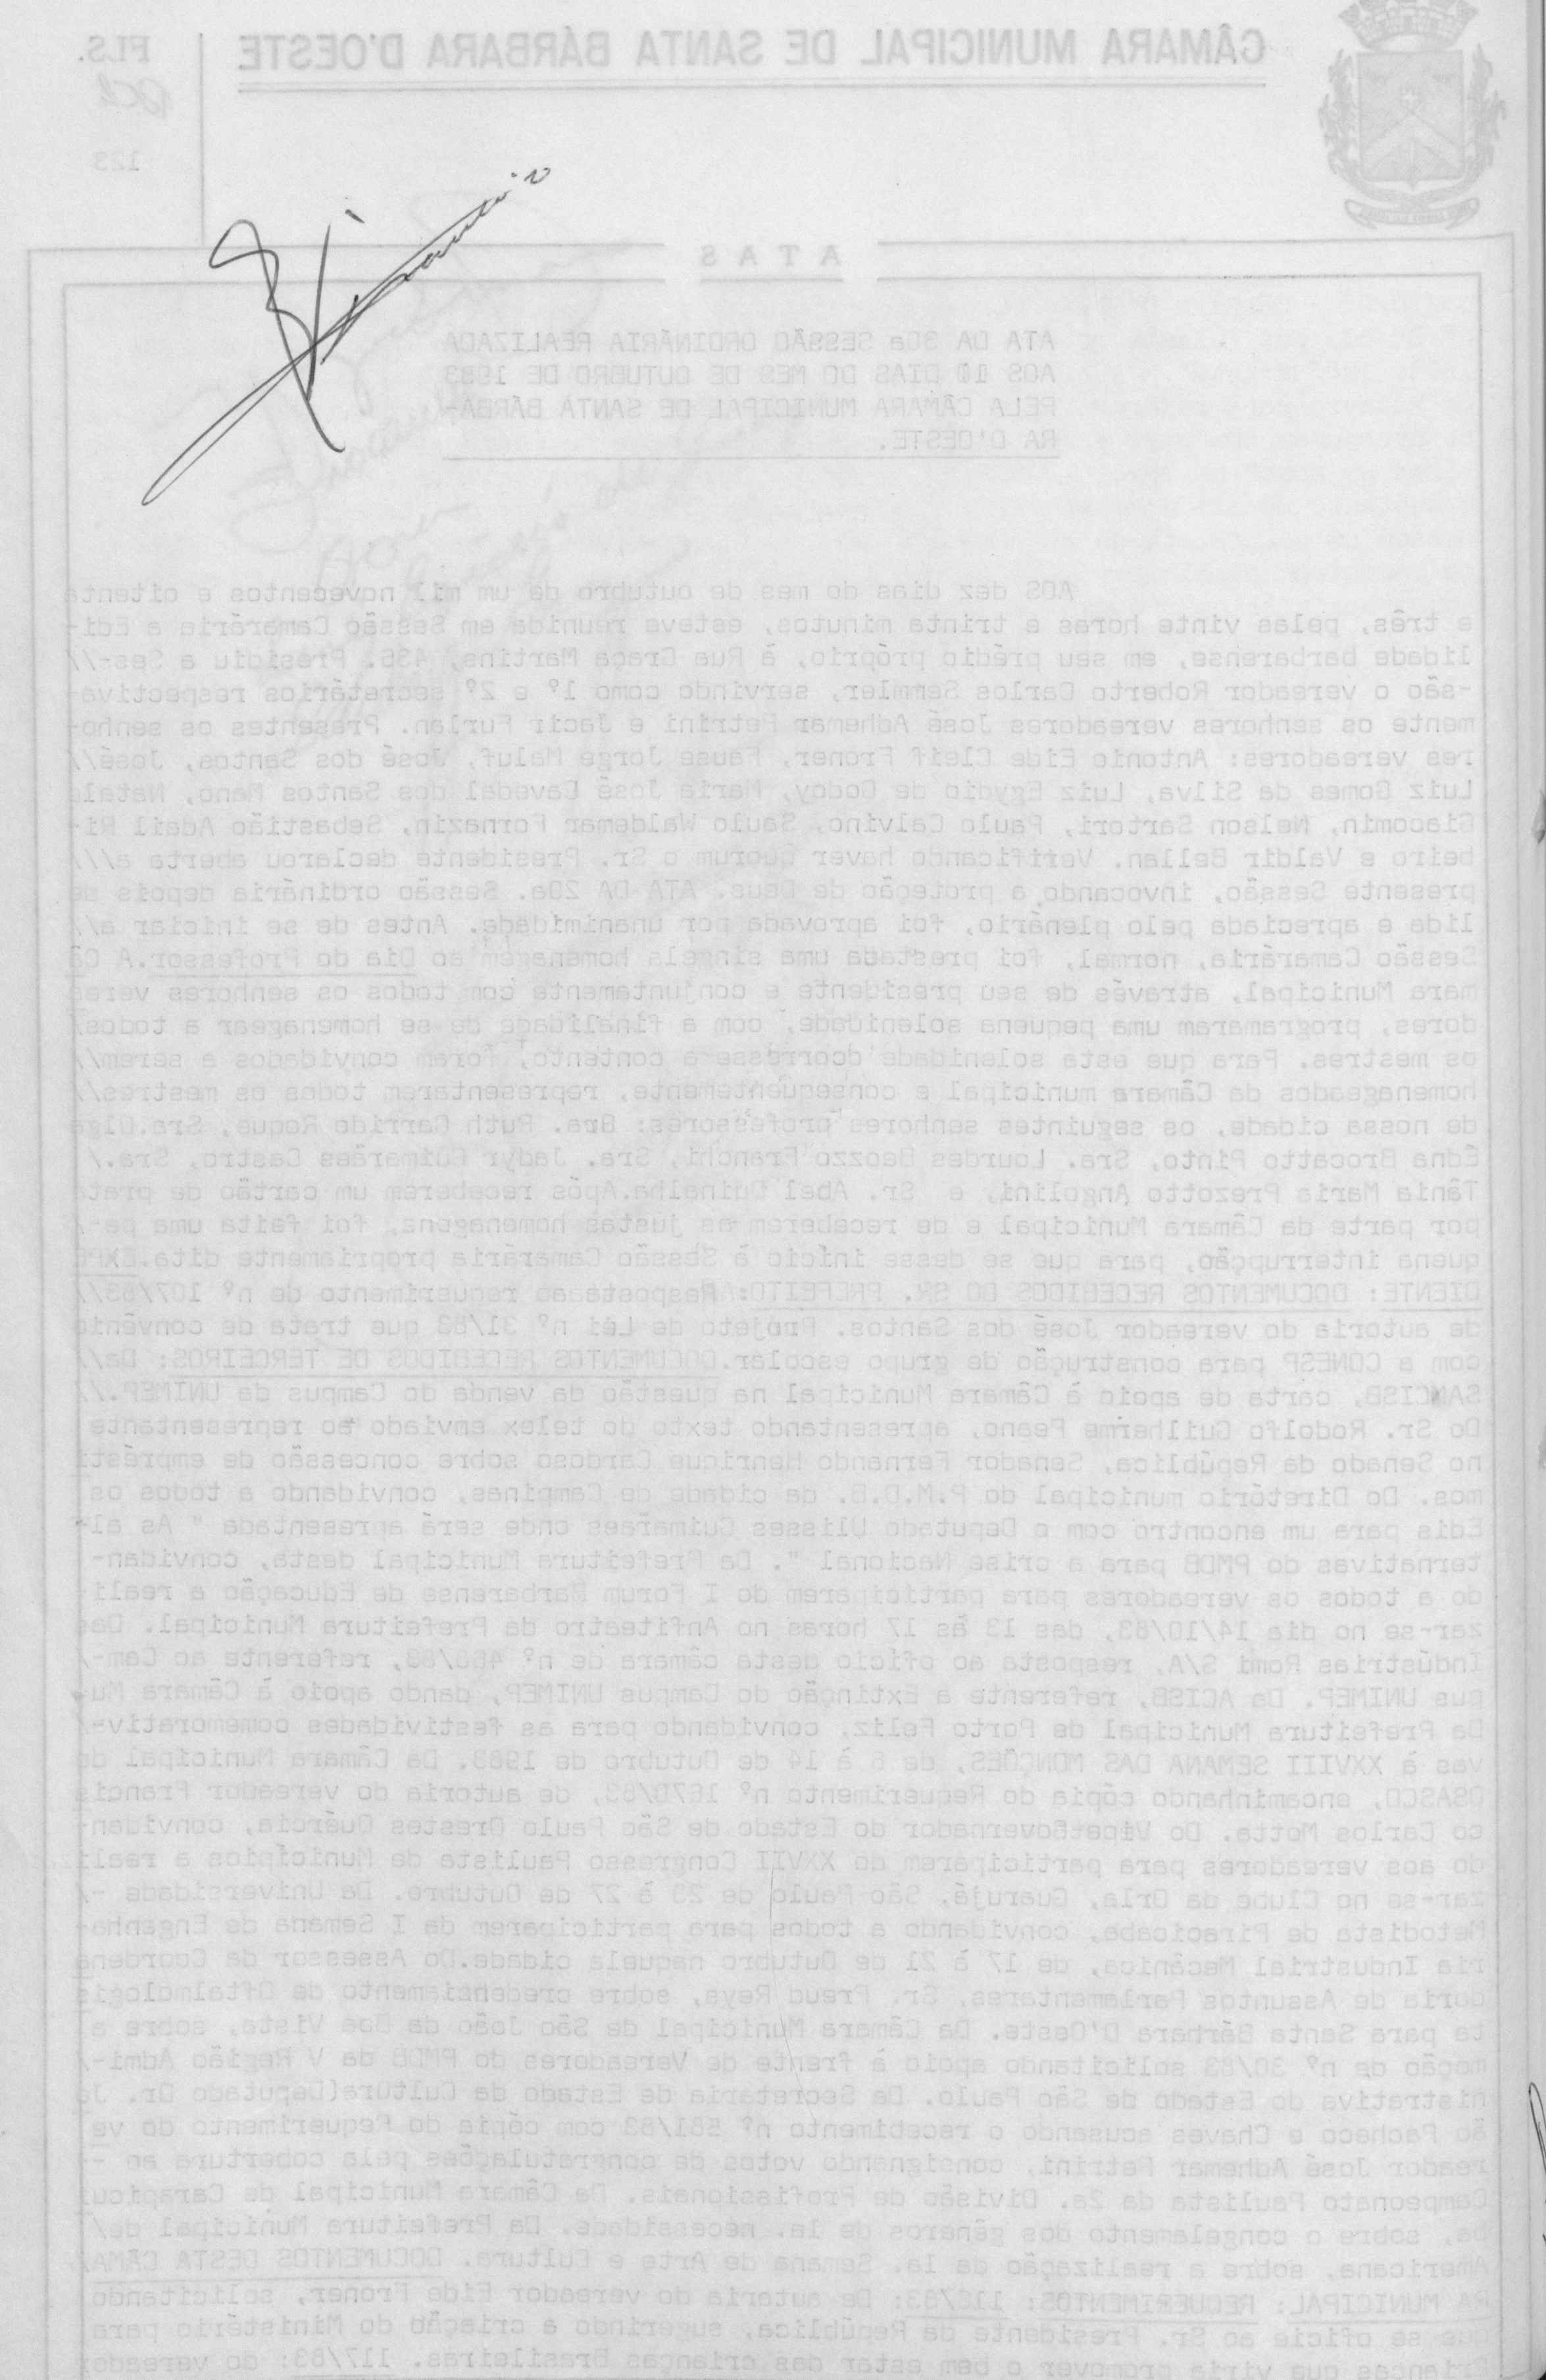 CÂMARA MUNICIPAL DE SANTA BÁRBARA D'OESTE
FLS.
123
ATAS
ATA DA 30a SESSÃO ORDINÁRIA REALIZADA
AOS 10 DIAS DO MES DE OUTUBRO DE 1983
PELA CÂMARA MUNICIPAL DE SANTA BÁRBA-
RA D'OESTE.
AOS dez dias do mes de outubro de um mil novecentos e oitenta
e três, pelas vinte horas e trinta minutos, esteve reunida em Sessão Camarária a Edi-
lidade barbarense, em seu prédio próprio, à Rua Graça Martins, 436. Presidiu a Ses-//
-são o vereador Roberto Carlos Semmler, servindo como 1º e 2º secretários respectiva-
mente os senhores vereadores José Adhemar Petrini e Jacir Furlan. Presentes os senho-
res vereadores: Antonio Eide Cleif Froner, Fause Jorge Maluf, José dos Santos, José//
Luiz Gomes da Silva, Luiz Egydio de Godoy, Maria José Cavedal dos Santos Mano, Natale
Giacomin, Nelson Sartori, Paulo Calvino, Saulo Waldemar Fornazin, Sebastião Adail Ri-
beiro e Valdir Bellan. Verificando haver Quorum o Sr. Presidente declarou aberta a//
presente Sessão, invocando a proteção de Deus. ATA DA 29a. Sessão ordinária depois de
lida e apreciada pelo plenário, foi aprovada por unanimidade. Antes de se iniciar a/
Sessão Camarária, normal, foi prestada uma singela homenagem ao Dia do Professor.A Câ
mara Municipal, através de seu presidente e conjuntamente com todos os senhores verea
dores, programaram uma pequena solenidade, com a finalidade de se homenagear a todos/
os mestres. Para que esta solenidade ocorresse a contento, foram convidados a serem//
homenageados da Câmara municipal e consequentemente, representarem todos os mestres//
de nossa cidade, os seguintes senhores professores: Bra. Ruth Garrido Roque, Sra.Olga
Edna Brocatto Pinto, Sra. Lourdes Beozzo Franchi, Sra. Jadyr Guimarães Castro, Sra./
Tânia Maria Prezotto Angolini, e Sr. Abel Duinalha.Após receberem um cartão de prata
por parte da Câmara Municipal e de receberem as justas homenagens, foi feita uma pe-/
quena interrupção, para que se desse início à Sessão Camarária propriamente dita.EXPE
DIENTE: DOCUMENTOS RECEBIDOS DO SR. PREFEITO: Resposta ao requerimento de nº 107/83//
de autoria do vereador José dos Santos. Projeto de Lei nº 31/83 que trata de convênio
com a CONESP para construção de grupo escolar.DOCUMENTOS RECEBIDOS DE TERCEIROS: Da//
SANCISB, carta de apoio à Câmara Municipal na questão da venda do Campus da UNIMEP.//
Do Sr. Rodolfo Guilherme Peano, apresentando texto do telex enviado ao representante
no Senado da República, Senador Fernando Henrique Cardoso sobre concessão de emprésti
mos. Do Diretório municipal do P.M.D.B. da cidade de Campinas, convidando a todos os
Edis para um encontro com o Deputado Ulisses Guimarães onde será apresentada " As al-
ternativas do PMDB para a crise Nacional ". Da Prefeitura Municipal desta, convidan-
do a todos os vereadores para participarem do I Forum Barbarense de Educação a reali-
zar-se no dia 14/10/83, das 13 às 17 horas no Anfiteatro da Prefeitura Municipal. Das
Indústrias Romi S/A, resposta ao ofício desta câmara de nº 468/83, referente ao Cam-/
pus UNIMEP. Da ACISB, referente a Extinção do Campus UNIMEP, dando apoio à Câmara Mu-
Da Prefeitura Municipal de Porto Feliz, convidando para as festividades comemorativa-/
vas à XXVIII SEMANA DAS MONÇÕES, de 6 à 14 de Outubro de 1983. Da Câmara Municipal de
OSASCO, encaminhando cópia do Requerimento nº 1670/83, de autoria do vereador Francis
co Carlos Motta. Do Vice-Governador do Estado de São Paulo Orestes Quércia, convidan-
do aos vereadores para participarem do XXVII Congresso Paulista de Municípios a reali
zar-se no Clube da Orla, Guarujá, São Paulo de 23 à 27 de Outubro. Da Universidade -/
Metodista de Piracicaba, convidando a todos para participarem da I Semana de Engenha-
ria Industrial Mecânica, de 17 à 21 de Outubro naquela cidade.Do Assessor da Coordena
doria de Assuntos Parlamentares, Sr. Freud Reys, sobre credenciamento de Oftalmologis
ta para Santa Bárbara D'Oeste. Da Câmara Municipal de São João da Boa Vista, sobre a
moção de nº 30/83 solicitando apoio à frente de Vereadores do PMDB da V Região Admi-/
nistrativa do Estado de São Paulo. Da Secretaria de Estado da Cultura(Deputado Dr. Jo
ão Pacheco e Chaves acusando o recebimento nº 581/83 com cópia do Requerimento do ve
reador José Adhemar Petrini, consignando votos de congratulações pela cobertura ao --
Campeonato Paulista da 2a. Divisão de Profissionais. Da Câmara Municipal de Carapicui
ba, sobre o congelamento dos gêneros de 1a. necessidade. Da Prefeitura Municipal de/
Americana, sobre a realização da 1a. Semana de Arte e Cultura. DOCUMENTOS DESTA CÂMA
RA MUNICIPAL: REQUERIMENTOS: 116/83: De autoria do vereador Eide Froner, solicitando
que se oficie ao Sr. Presidente da República, sugerindo a criação do Ministério para
Crianças que viria promover o bem estar das crianças Brasileiras. 117/83: do vereador